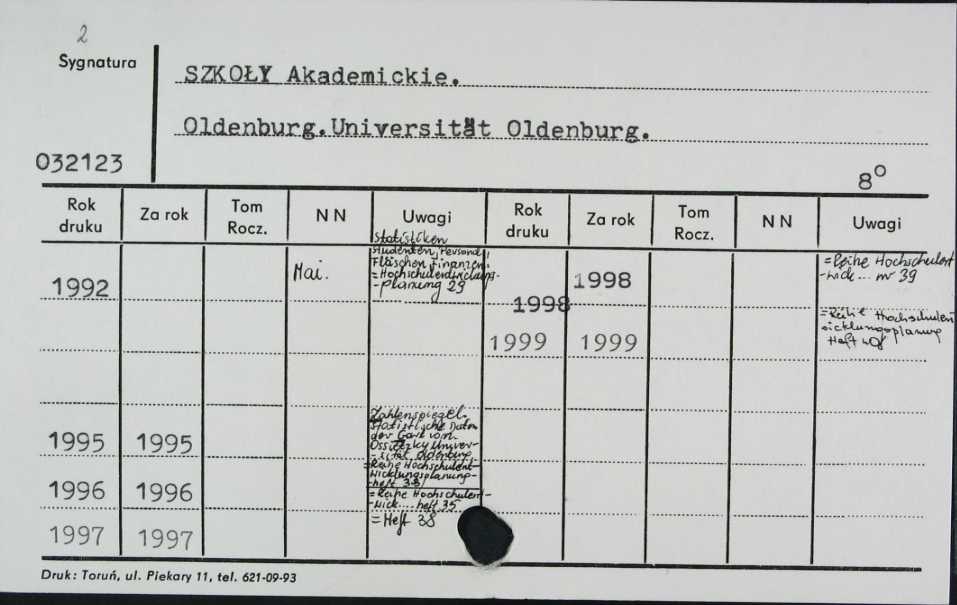 2
Sygnatura
SZKOŁY Akademickie.
Oldenburg.Universität Oldenburg.
032123
8°
Rok druku Za rok Tom Rocz. NN Uwagi Rok druku Za rok Tom Rocz. NN Uwagi
1992 Mai.
Statistiken
Studenten, Personal,
Flächen, Finanzen.
= Hochschulentwicklungs-
-planung 29
1998 1998
= Reihe Hochschulent
-wick... nr 39
1999 1999
= Reihe Hochschulent
wicklungsplanung
Heft
1995 1995
Zahlenspiegel.
Statistische Daten
der Carl von
Ossietzky Univer-
-sität Oldenburg
= Reihe Hochschulent-
wicklungsplanung-
-heft 33
1996 1996
= Reihe Hochschulent-
-wick.... heft 35
1997 1997
= Heft 38
Druk: Toruń, ul. Piekary 11, tel. 621-09-93